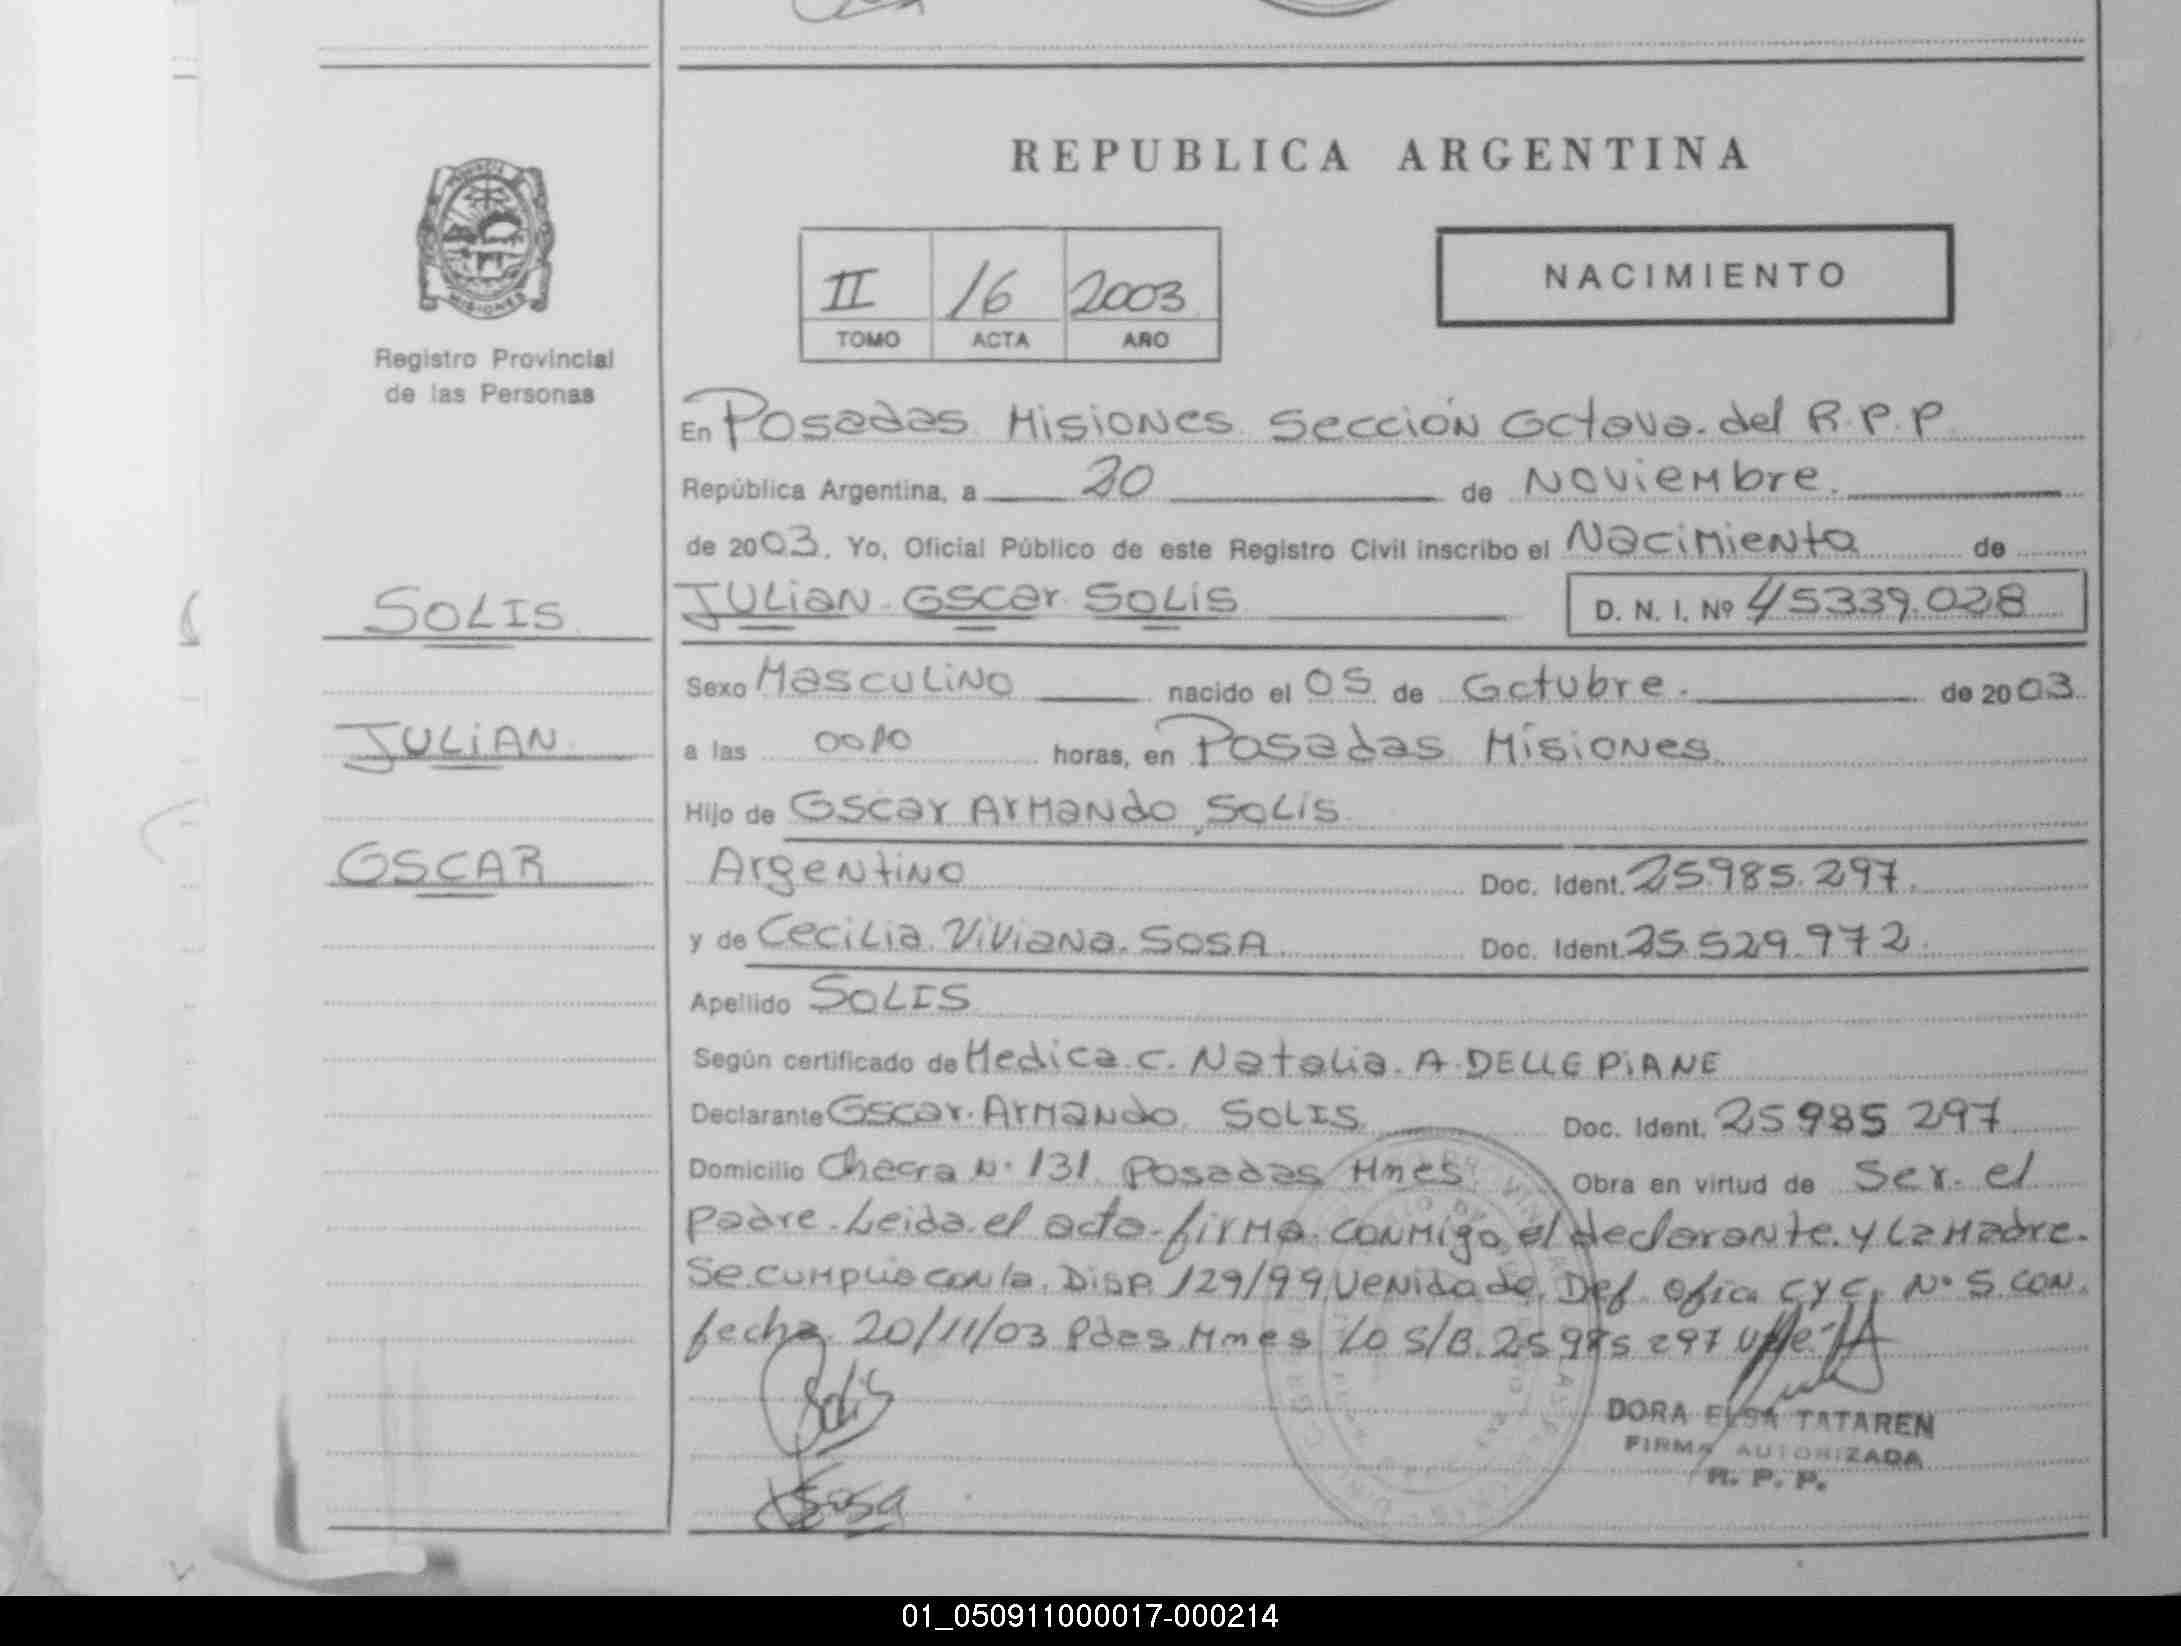 REPUBLICA ARGENTINA
MISIONES
Registro Provincial
de las Personas
II 16 2003
TOMO ACTA AÑO
NACIMIENTO
En Posadas Misiones Sección Octava del R.P.P
República Argentina, a 20 de Noviembre.
de 2003. Yo, Oficial Público de este Registro Civil inscribo el Nacimiento de
SOLIS
JULian Oscar SOLIS D. N. I. Nº 45339.028
Sexo Masculino nacido el 05 de Octubre. de 2003
JULIAN
a las 0010 horas, en Posadas Misiones
Hijo de Oscar Armando SOLIS
OSCAR
Argentino Doc. Ident. 25.985.297.
y de Cecilia Viviana SOSA Doc. Ident. 25.529.972
Apellido SOLIS
Según certificado de Medica C. Natalia A DELLEPIANE
Declarante Oscar Armando SOLIS Doc. Ident. 25985297
Domicilio Chacra Nº 131 Posadas Mnes Obra en virtud de Ser el
padre. Leida el acta firma conmigo el declarante y La Madre.
Se cumplio con la Disp. 129/99 Venida de Def. Ofic. CYC. Nº 5 con
fecha 20/11/03 Pdas Mnes Lo S/B. 25985297 Vale
Solis
DORA ELSA TATAREN
FIRMA AUTORIZADA
R. P. P.
Sosa
01_050911000017-000214